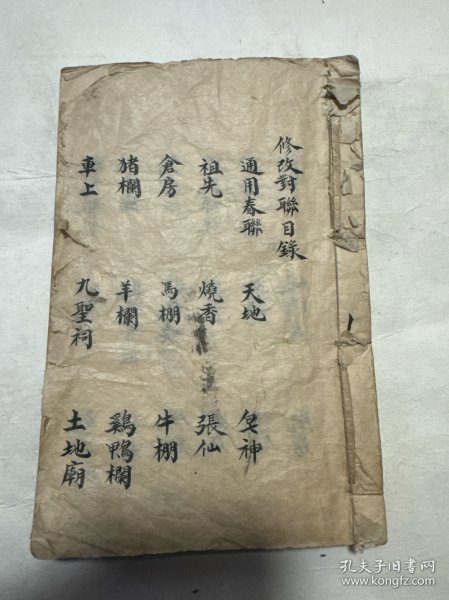 修改對聯目錄
通用春聯 天地 皂神
祖先 燒香 張仙
倉房 馬棚 牛棚
猪欄 羊欄 鷄鴨欄
車上 九聖祠 土地廟
孔夫子旧书网
www.kongfz.com